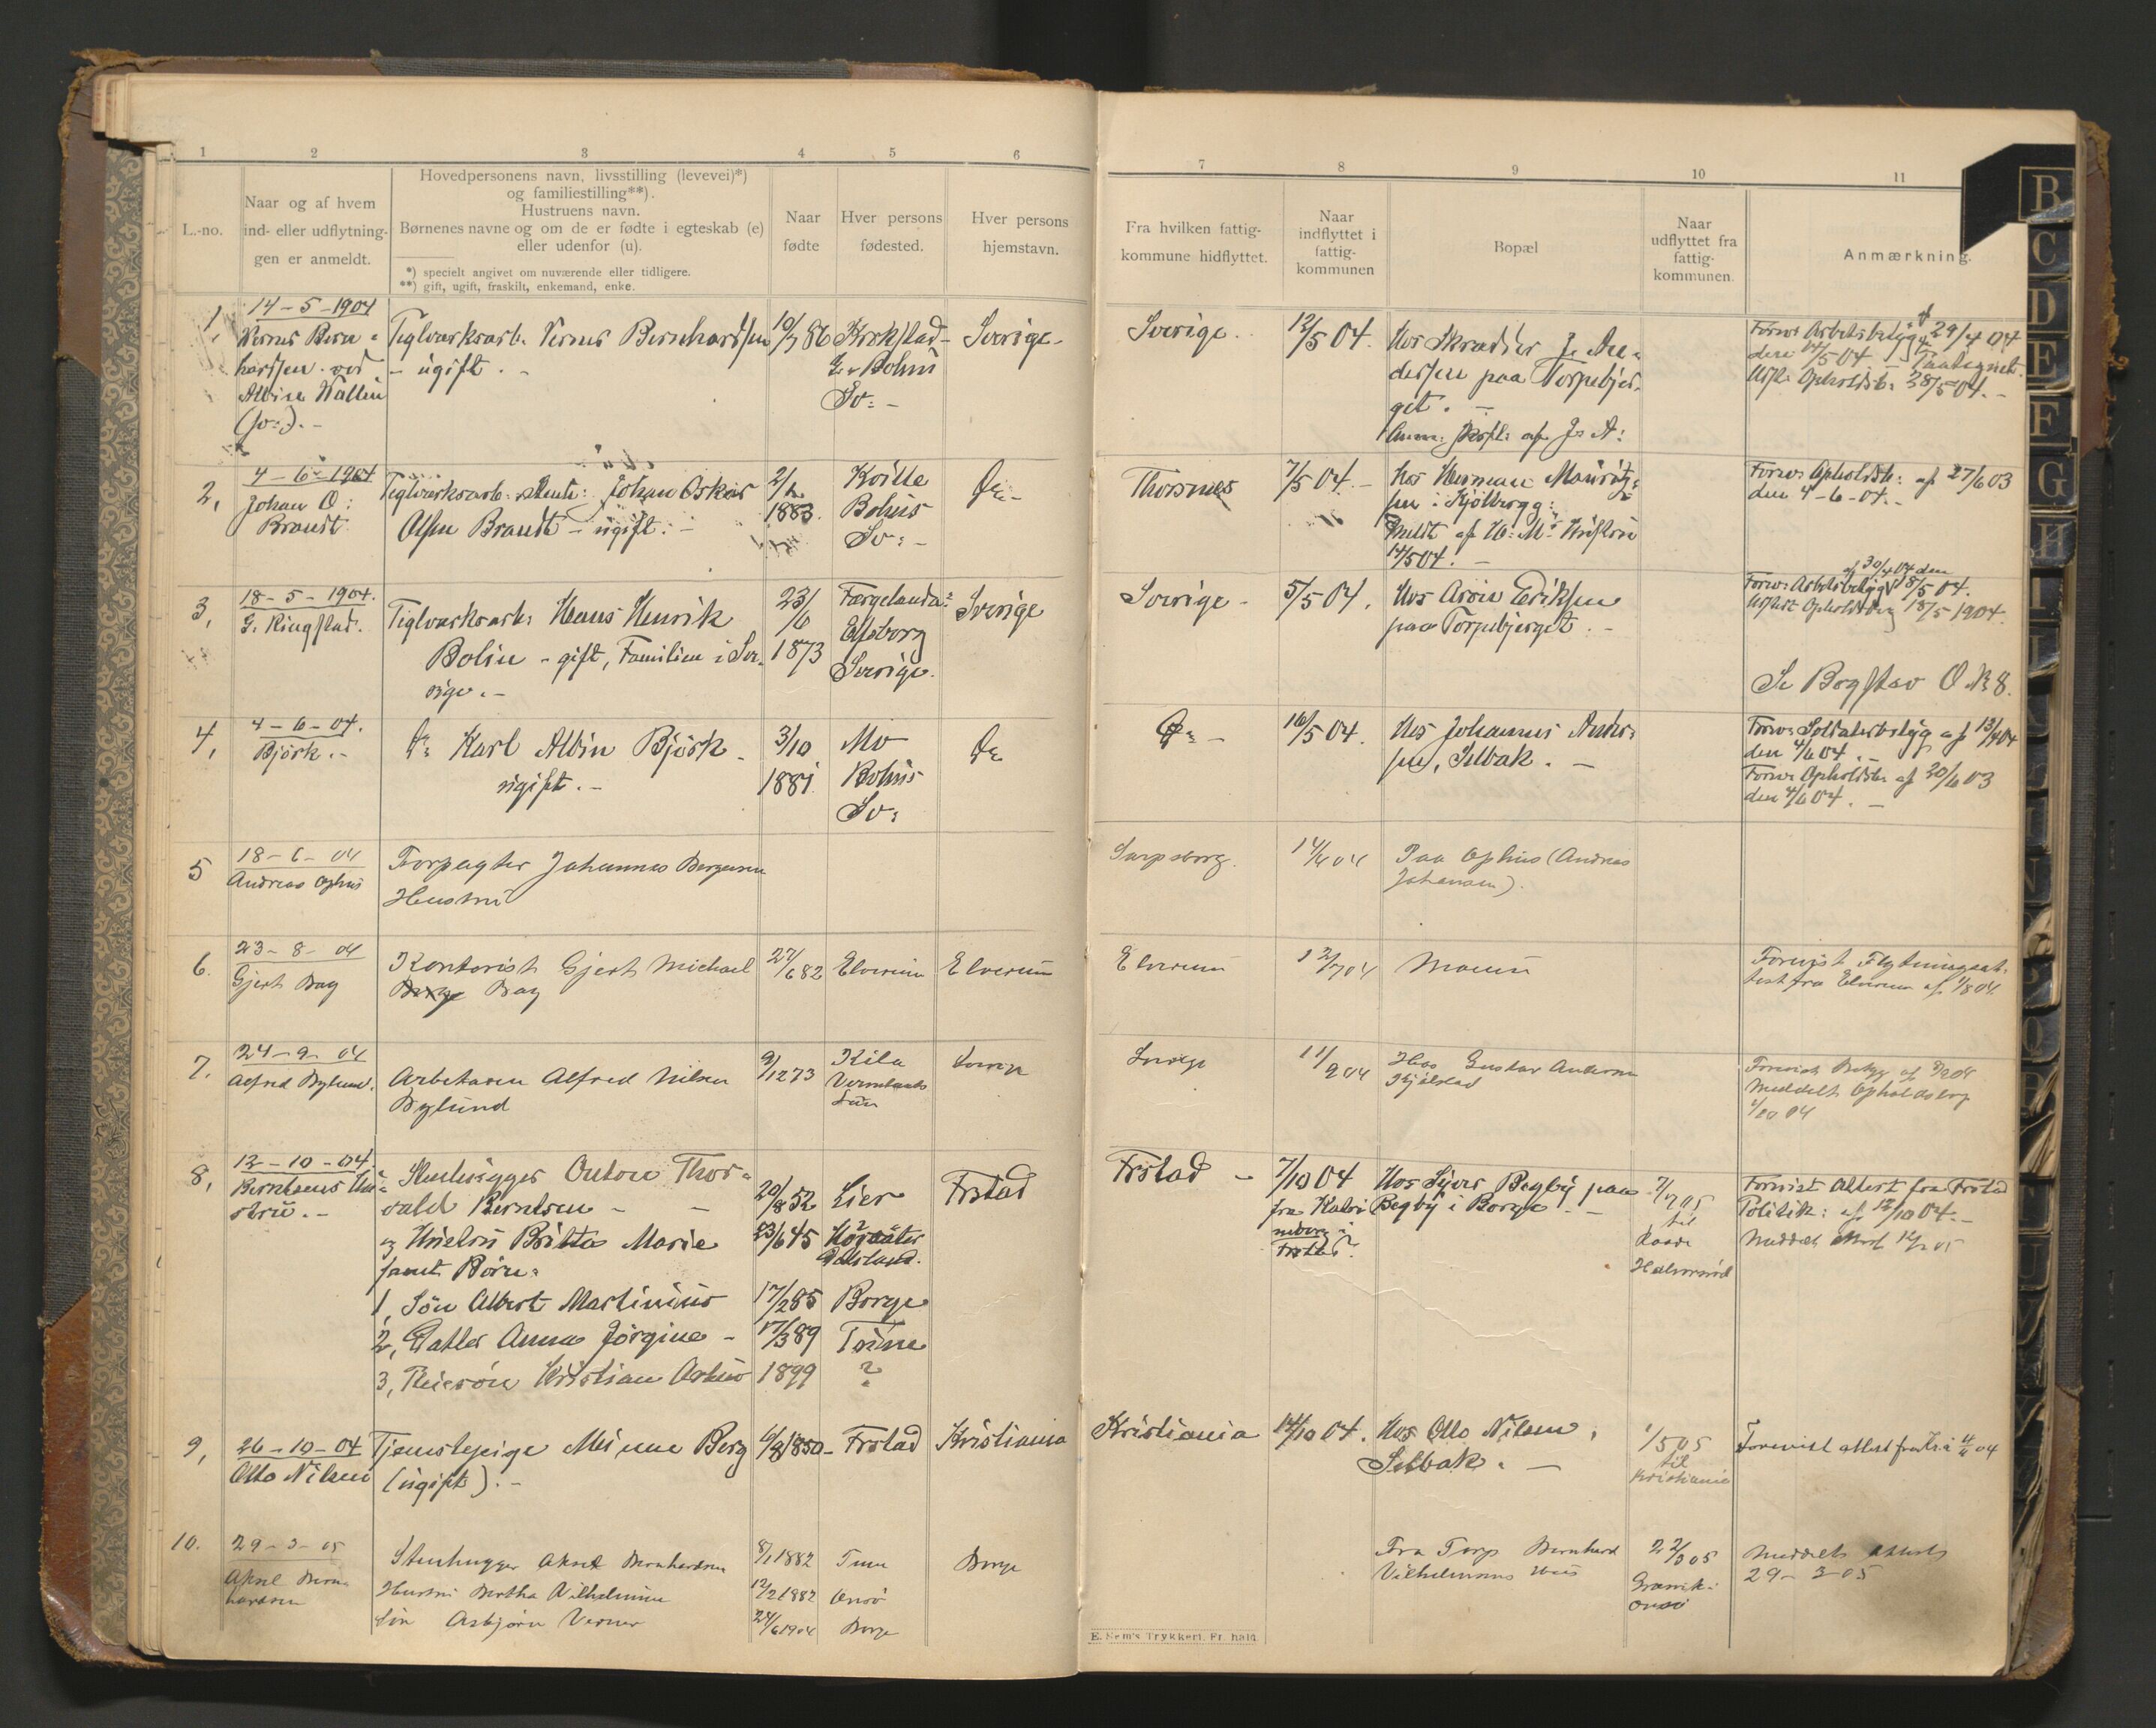 1 2 3 4 5 6
L.-no.
Naar og af hvem
ind- eller udflytnin-
gen er anmeldt.
Hovedpersonens navn, livsstilling (levevei)*)
og familiestilling**).
Hustruens navn.
Børnenes navne og om de er fødte i egteskab (e)
eller udenfor (u).
*) specielt angivet om nuværende eller tidligere.
**) gift, ugift, fraskilt, enkemand, enke.
Naar
fødte
Hver persons
fødested.
Hver persons
hjemstavn.
1,
14-5-1904
Verner Bern-
hardsen ved
Albin Wallin
(sv:).-
Teglværksarb. Verner Bernhardsen
- ugift. -
10/7 86
Bohus
Sv: -
Sverige-
2,
4-6-1904
Johan O:
Brandt
Teglværksarb: Johan Oskar
Olsen Brandt - ugift: -
2/12
1883.
Kville
Bohus
Sv: -
Do-
3,
18-5-1904.
G. Ringstad.
Teglværksarb: Hans Henrik
Bolin - gift, Familien i Sve-
rige.-
23/6
1873
Færgelanda
Elfsborg
Sverige.
Sverige
4,
4-6-04.
Björk.-
do Karl Albin Björk -
ugift.-
3/10
1881
Mo
Bohus
Sv:
Do
5
18-6-04
Andreas Ophus
Forpagter Johannes Borgersen
Hustru
6.
23-8-04
Gjert Bay
Kontorist Gjert Michael
Bay
27/6 82
Elverum
Elverum
7.
24-9-04
Alfred Bylund.
Arbeheren Alfred Nilsen
Bylund
9/12 73
Kila
Vermlands
Län
Sverige
8,
12-10-04.
Berntsens Hu-
stru.-
Stenhugger Anton Thor-
vald Berntsen - -
og Hustru Britta Marie
samt Børn:
1, Søn Albert Martinius
2, Datter Anna Jørgine -
3, Pleiesøn Kristian
20/8 52
23/6 45
17/2 85
17/3 89
1899
Lier
Högsäter
Dalsland.
Borge
Tune
?
Frstad
9,
26-10-04
Otto Nilsen
Tjenestepige Minne Berg
(ugift).-
6/8 1850-
Frstad
Kristiania
10.
29-3-05
Aksel Bern-
hardsen
Stenhugger Aksel Bernhardsen
Hustru Bertha Vilhelmine
Søn Asbjørn Verner
8/1 1882
12/2 1882
24/6 1904
Tune
Onsø
Borge
Borge
7 8 9 10 11
Fra hvilken fattig-
kommune hidflyttet.
Naar
indflyttet i
fattig-
kommunen
Bopæl
Naar
udflyttet fra
fattig-
kommunen.
Anmærkning.
Sverige.
12/5 04.
Hos Skræder J. An-
dersen paa Torpebjer-
get. -
Forev: Arbeidsbetyg af 29/4 04
den 14/5 04
Udst. Opholdsb: 28/5 04.-
Thorsnes
7/5 04.-
Hos Herman Mauritz-
sen i Kjölbergg:
Meldt af H: M: Hustru
14/5 04. -
Forev: Opholdsb: af 27/6 03
den 4-6-04.-
Sverige -
5/5 04.
Hos Aron Eriksen
paa Torpebjerget. -
af 30/4 04 den
Forev: Arbeidsbetyg 18/5 04.
Udstedt Opholdsbog 18/5 1904.
Se Bogstav O № 8.
Do -
16/5 04.
Hos Johannes Ander-
sen, Selbak. -
Forev: Soldaterbetyg af 13/4 04
den 4/6 04.-
Forev: Opholdsb: af 30/6 03
den 4/6 04. -
Sarpsborg.
14/4 04
Paa Ophus (Andreas
Johansen).
Elverum
12/7 04
Moum
Forevist Flytningsat-
test fra Elverum af 1/8 04.
Sverige
11/9 04
Hos Gustav Andersen
Kjölstad
Forevist Betyg af
Meddelt Opholdsbog
1/10 04
Frstad -
7/10 04
fra
Frstad.
Hos Sivert Begby paa
Begby i Borge. -
7/2 05
til
Raade
Halvorsrød
Forevist Attest fra Frstad
Politik: af 12/10 04.-
Meddelt Attest 12/2 05
Kristiania
14/10 04.
Hos Otto Nilsen,
Selbak. -
1/5 05
til
Kristiania
Forevist attest fra Kr.a 4/11 04
Fra Torp Bernhard
Vilhelmsens Hus
22/3 05
Onsø
Meddelt Attest
29-3-05
E. Sem's Trykkeri, Fr. hald.
B
C
D
E
F
G
H